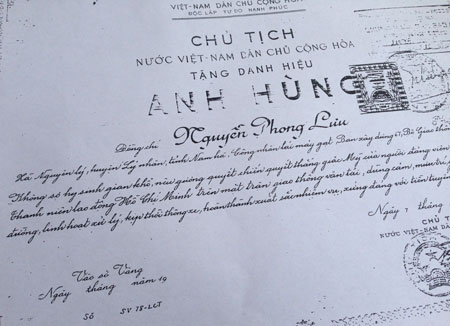 VIỆT-NAM DÂN CHỦ CỘNG HÒA
ĐỘC LẬP TỰ DO HẠNH PHÚC
CHỦ TỊCH
NƯỚC VIỆT-NAM DÂN CHỦ CỘNG HÒA
TẶNG DANH HIỆU
ANH HÙNG
Đồng chí Nguyễn Phong Lưu
Xã Nguyên lý, huyện Lý nhân, tỉnh Nam hà. Công nhân lái máy gạt Ban xây dựng 67, Bộ Giao thông
Không sợ hy sinh gian khổ, nêu gương quyết chiến quyết thắng giặc Mỹ của người đảng viên
thanh niên lao động Hồ Chí Minh trên mặt trận giao thông vận tải, dũng cảm, mưu trí
đường, linh hoạt xử lý, kịp thời thông xe, hoàn thành xuất sắc nhiệm vụ, xứng đáng với tiền tuyến
Ngày tháng
CHỦ T
NƯỚC VIỆT-NAM DÂN
Vào sổ Vàng
Ngày tháng năm 19
Số SV 78-LCT